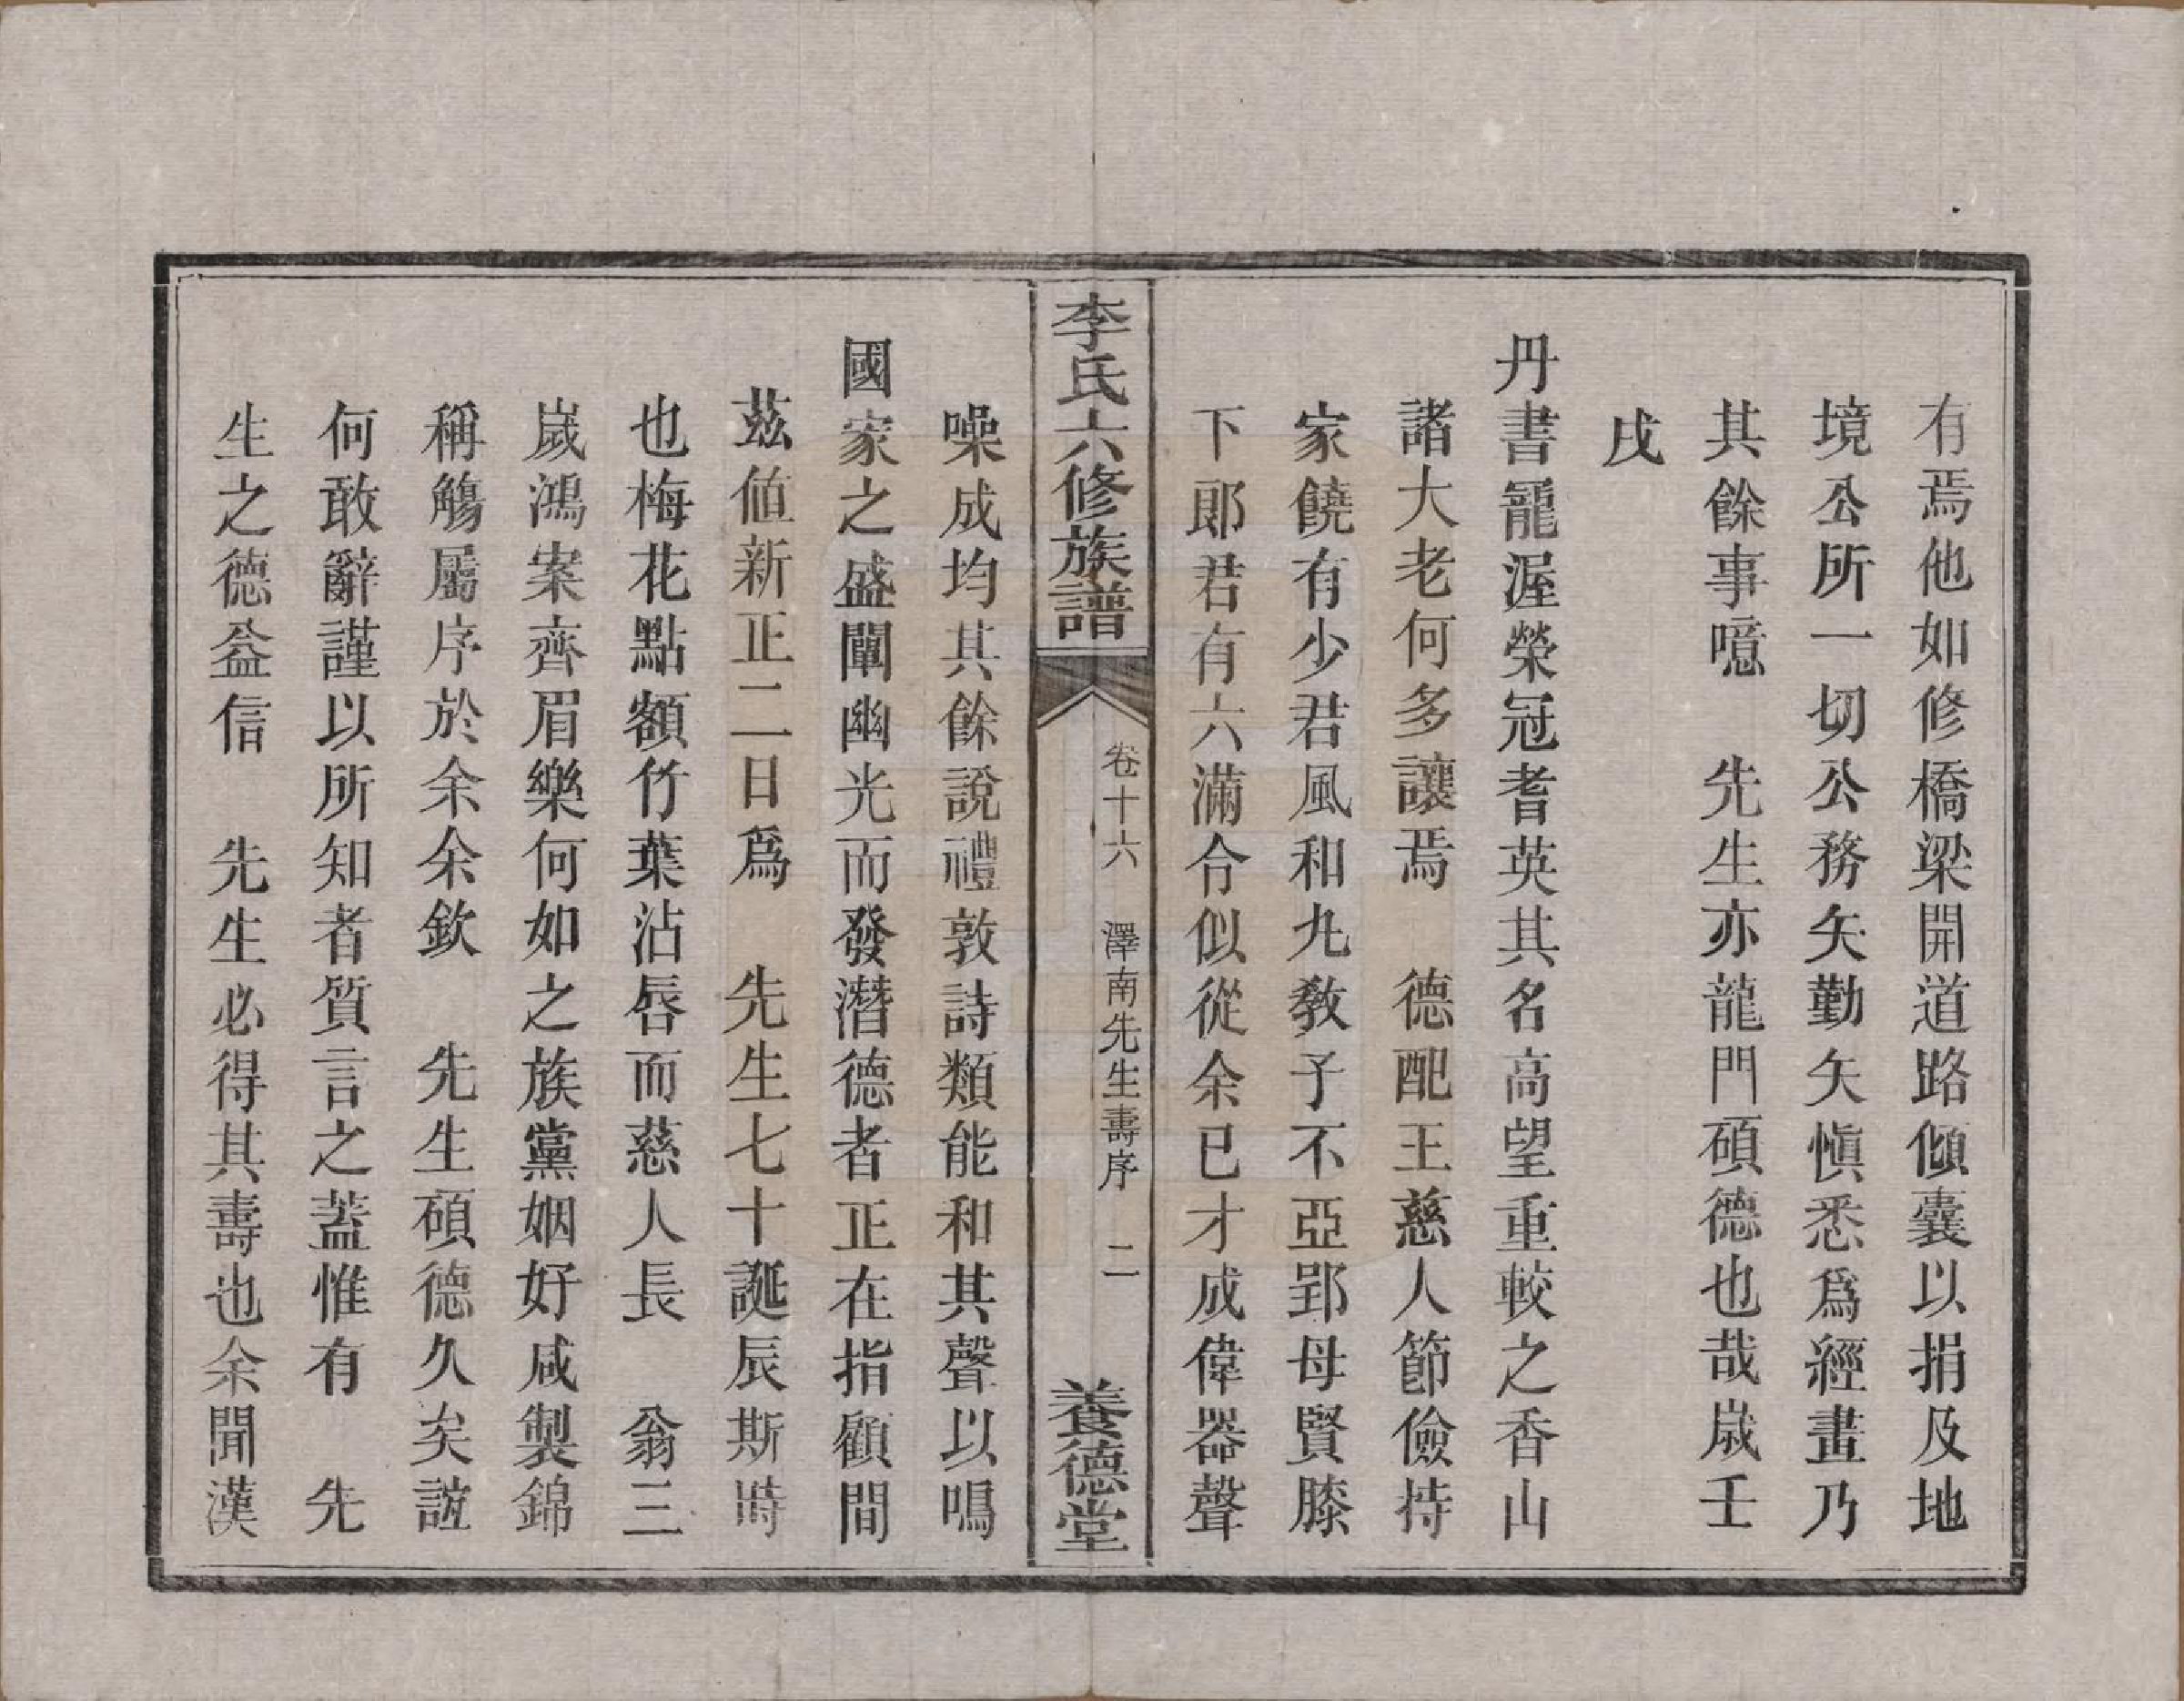 有焉他如修橋梁開道路傾囊以捐及地
境公所一切公務矢勤矢愼悉爲經畫乃
其餘事噫　先生亦龍門碩德也哉歲壬
戌
丹書寵渥榮冠耆英其名高望重較之香山
諸大老何多讓焉　德配王慈人節儉持
家饒有少君風和九敎子不亞郢母賢膝
下郞君有六滿合似從余已才成偉器聲
李氏六修族譜　卷十六　澤南先生壽序　二　養德堂
噪成均其餘說禮敦詩類能和其聲以鳴
國家之盛闡幽光而發潛德者正在指顧間
茲値新正二日爲　先生七十誕辰斯時
也梅花點額竹葉沾唇而慈人長　翁三
歲鴻案齊眉樂何如之族黨姻好咸製錦
稱觴屬序於余余欽　先生碩德久矣誼
何敢辭謹以所知者質言之蓋惟有　先
生之德益信　先生必得其壽也余聞漢